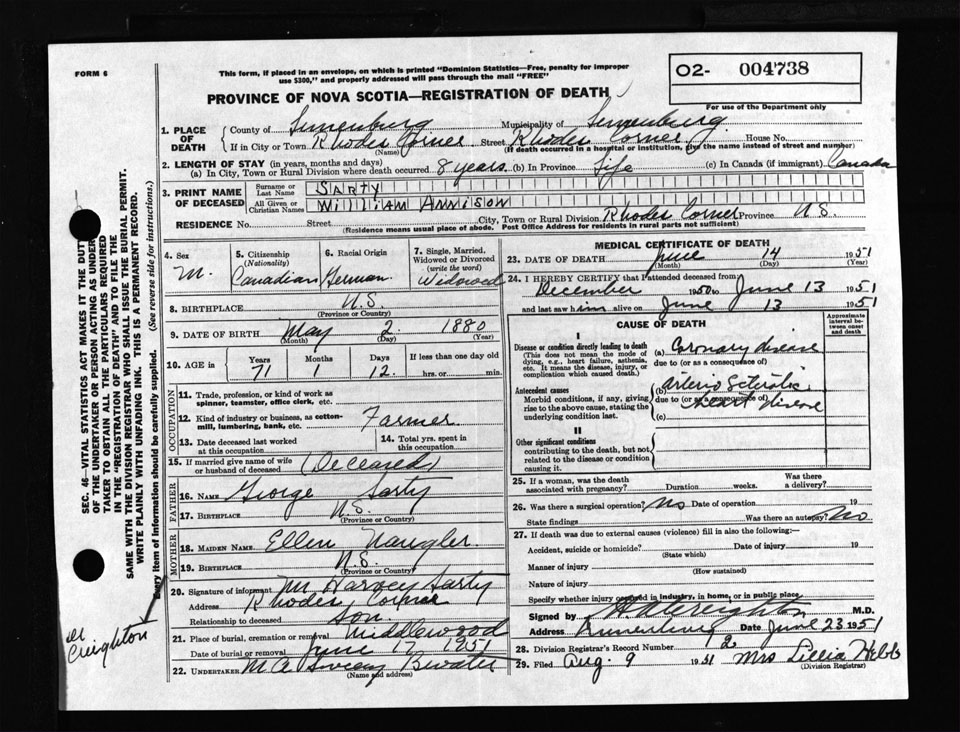 FORM 6
This form, if placed in an envelope, on which is printed "Dominion Statistics—Free, penalty for improper
use $300," and properly addressed will pass through the mail "FREE"
02- 004738
For use of the Department only
PROVINCE OF NOVA SCOTIA—REGISTRATION OF DEATH
1. PLACE OF DEATH
County of Lunenburg Municipality of Lunenburg
If in City or Town Rhodes Corner Street Rhodes Corner House No.
(Name) (If death occurred in a hospital or institution, give the name instead of street and number)
2. LENGTH OF STAY (in years, months and days)
(a) In City, Town or Rural Division where death occurred 8 years (b) In Province Life (c) In Canada (if immigrant) Canada
3. PRINT NAME OF DECEASED
Surname or Last Name SARTY
All Given or Christian Names William Annison
RESIDENCE No. Street City, Town or Rural Division Rhodes Corner Province N.S.
(Residence means usual place of abode. Post Office Address for residents in rural parts not sufficient)
4. Sex M.
5. Citizenship (Nationality) Canadian
6. Racial Origin German
7. Single, Married, Widowed or Divorced (write the word) Widowed
8. BIRTHPLACE N.S.
(Province or Country)
9. DATE OF BIRTH May 2 1880
(Month) (Day) (Year)
10. AGE in Years 71 Months 1 Days 12. If less than one day old hrs. or min.
OCCUPATION
11. Trade, profession, or kind of work as
spinner, teamster, office clerk, etc.
12. Kind of industry or business, as cotton-
mill, lumbering, bank, etc. Farmer
13. Date deceased last worked
at this occupation
14. Total yrs. spent in
this occupation
15. If married give name of wife
or husband of deceased (Deceased)
FATHER
16. NAME George Sarty
17. BIRTHPLACE N.S.
(Province or Country)
MOTHER
18. MAIDEN NAME Ellen Naugler
19. BIRTHPLACE N.S.
(Province or Country)
20. Signature of informant M Harvey Sarty
Address Rhodes Corner
Relationship to deceased son.
21. Place of burial, cremation or removal Middlewood
Date of burial or removal June 17 1951
22. UNDERTAKER M A
(Name and address)
MEDICAL CERTIFICATE OF DEATH
23. DATE OF DEATH June 14 1951
(Month) (Day) (Year)
24. I HEREBY CERTIFY that I attended deceased from
December 1950 to June 13 1951
and last saw him alive on June 13 1951
CAUSE OF DEATH
Approximate interval between onset and death
I
Disease or condition directly leading to death
(This does not mean the mode of
dying, e.g., heart failure, asthenia,
etc. It means the disease, injury, or
complication which caused death.)
(a) Coronary disease
due to (or as a consequence of)
Antecedent causes
Morbid conditions, if any, giving
rise to the above cause, stating the
underlying condition last.
(b) Arterio Sclerotic
due to (or as a consequence of)
heart disease
(c)
II
Other significant conditions
contributing to the death, but not
related to the disease or condition
causing it.
25. If a woman, was the death
associated with pregnancy? Duration weeks. Was there a delivery?
26. Was there a surgical operation? No Date of operation 19
State findings Was there an autopsy? No
27. If death was due to external causes (violence) fill in also the following:—
Accident, suicide or homicide? Date of injury 19
(State which)
Manner of injury
(How sustained)
Nature of injury
Specify whether injury occurred in industry, in home, or in public place
Signed by H A Creighton M.D.
Address Lunenburg Date June 23 1951
28. Division Registrar's Record Number 12
29. Filed Aug. 9 1951 Mrs Lillia Hebb
(Division Registrar)
SEC. 46—VITAL STATISTICS ACT MAKES IT THE DUTY
OF THE UNDERTAKER OR PERSON ACTING AS UNDER-
TAKER TO OBTAIN ALL THE PARTICULARS REQUIRED
IN THE "REGISTRATION OF DEATH" AND TO FILE THE
SAME WITH THE DIVISION REGISTRAR WHO SHALL ISSUE THE BURIAL PERMIT.
WRITE PLAINLY WITH UNFADING INK. THIS IS A PERMANENT RECORD.
Every item of information should be carefully supplied. (See reverse side for instructions.)
Creighton